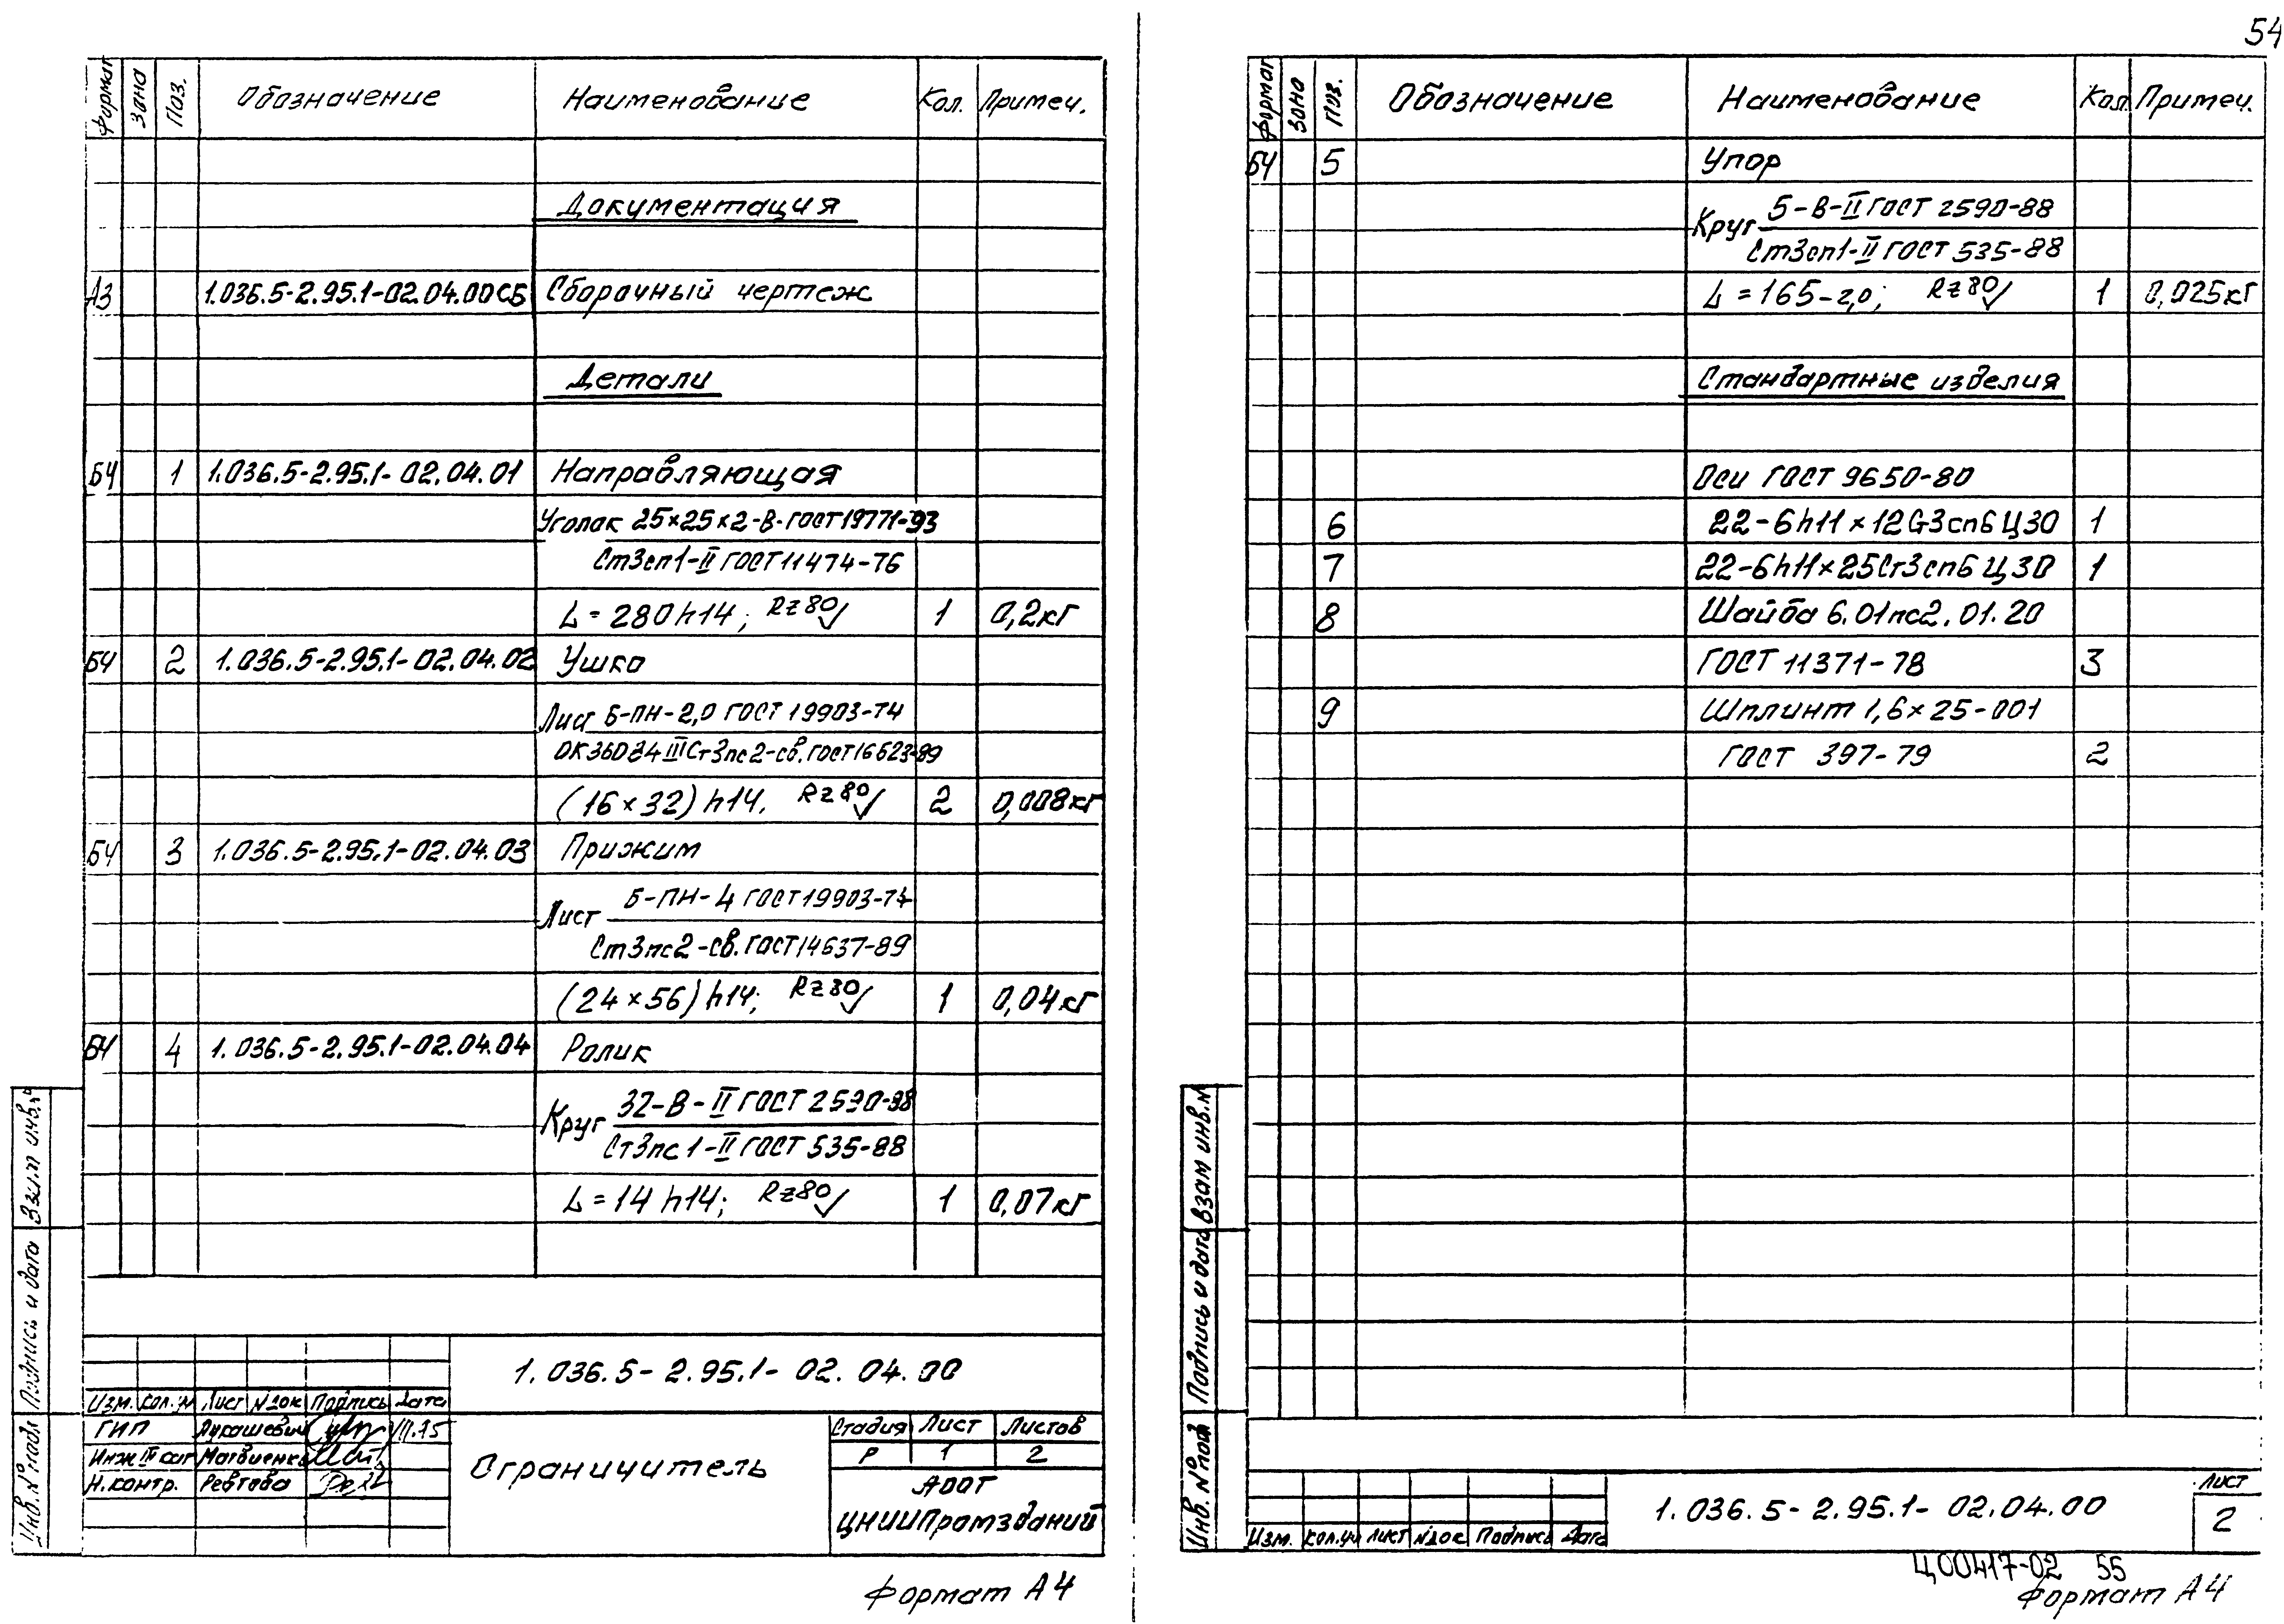 54
Формат Зона Поз. Обозначение Наименование Кол. Примеч.
Документация
А3 1.036.5-2.95.1-02.04.00СБ Сборочный чертеж
Детали
БЧ 1 1.036.5-2.95.1-02.04.01 Направляющая
Уголок 25×25×2-В-ГОСТ 19771-93
Ст3сп1-II ГОСТ 11474-76
L = 280h14; Rz80 1 0,2кг
БЧ 2 1.036.5-2.95.1-02.04.02 Ушко
Лист Б-ПН-2,0 ГОСТ 19903-74
III Ст3пс2-св.ГОСТ 16523-89
(16×32)h14. Rz80 2 0,008кг
БЧ 3 1.036.5-2.95.1-02.04.03 Прижим
Лист Б-ПН-4 ГОСТ 19903-74
Ст3пс2-св.ГОСТ 14637-89
(24×56)h14; Rz80 1 0,04кг
БЧ 4 1.036.5-2.95.1-02.04.04 Ролик
Круг 32-В-II ГОСТ 2590-88
Ст3пс1-II ГОСТ 535-88
L = 14h14; Rz80 1 0,07кг
Инв. № подл Подпись и дата Взам инв.№
1.036.5-2.95.1-02.04.00
Изм. Кол.уч Лист №док Подпись Дата
ГИП Лукашевич
Инж III кат Матвиенко
Н.контр. Ревтова
Ограничитель
Стадия Лист Листов
Р 1 2
АООТ
ЦНИИПромзданий
Формат А4
Формат Зона Поз. Обозначение Наименование Кол. Примеч.
БЧ 5 Упор
Круг 5-В-II ГОСТ 2590-88
Ст3сп1-II ГОСТ 535-88
L = 165-2,0; Rz80 1 0,025кг
Стандартные изделия
Оси ГОСТ 9650-80
6 22-6h11×12Ст3сп6Ц30 1
7 22-6h11×25Ст3сп6Ц30 1
8 Шайба 6.01пс2.01.20
ГОСТ 11371-78 3
9 Шплинт 1,6×25-001
ГОСТ 397-79 2
Инв. № подл Подпись и дата Взам инв.№
Изм. Кол.уч Лист №док Подпись Дата
1.036.5-2.95.1-02.04.00
Лист
2
Ц00417-02 55
Формат А4